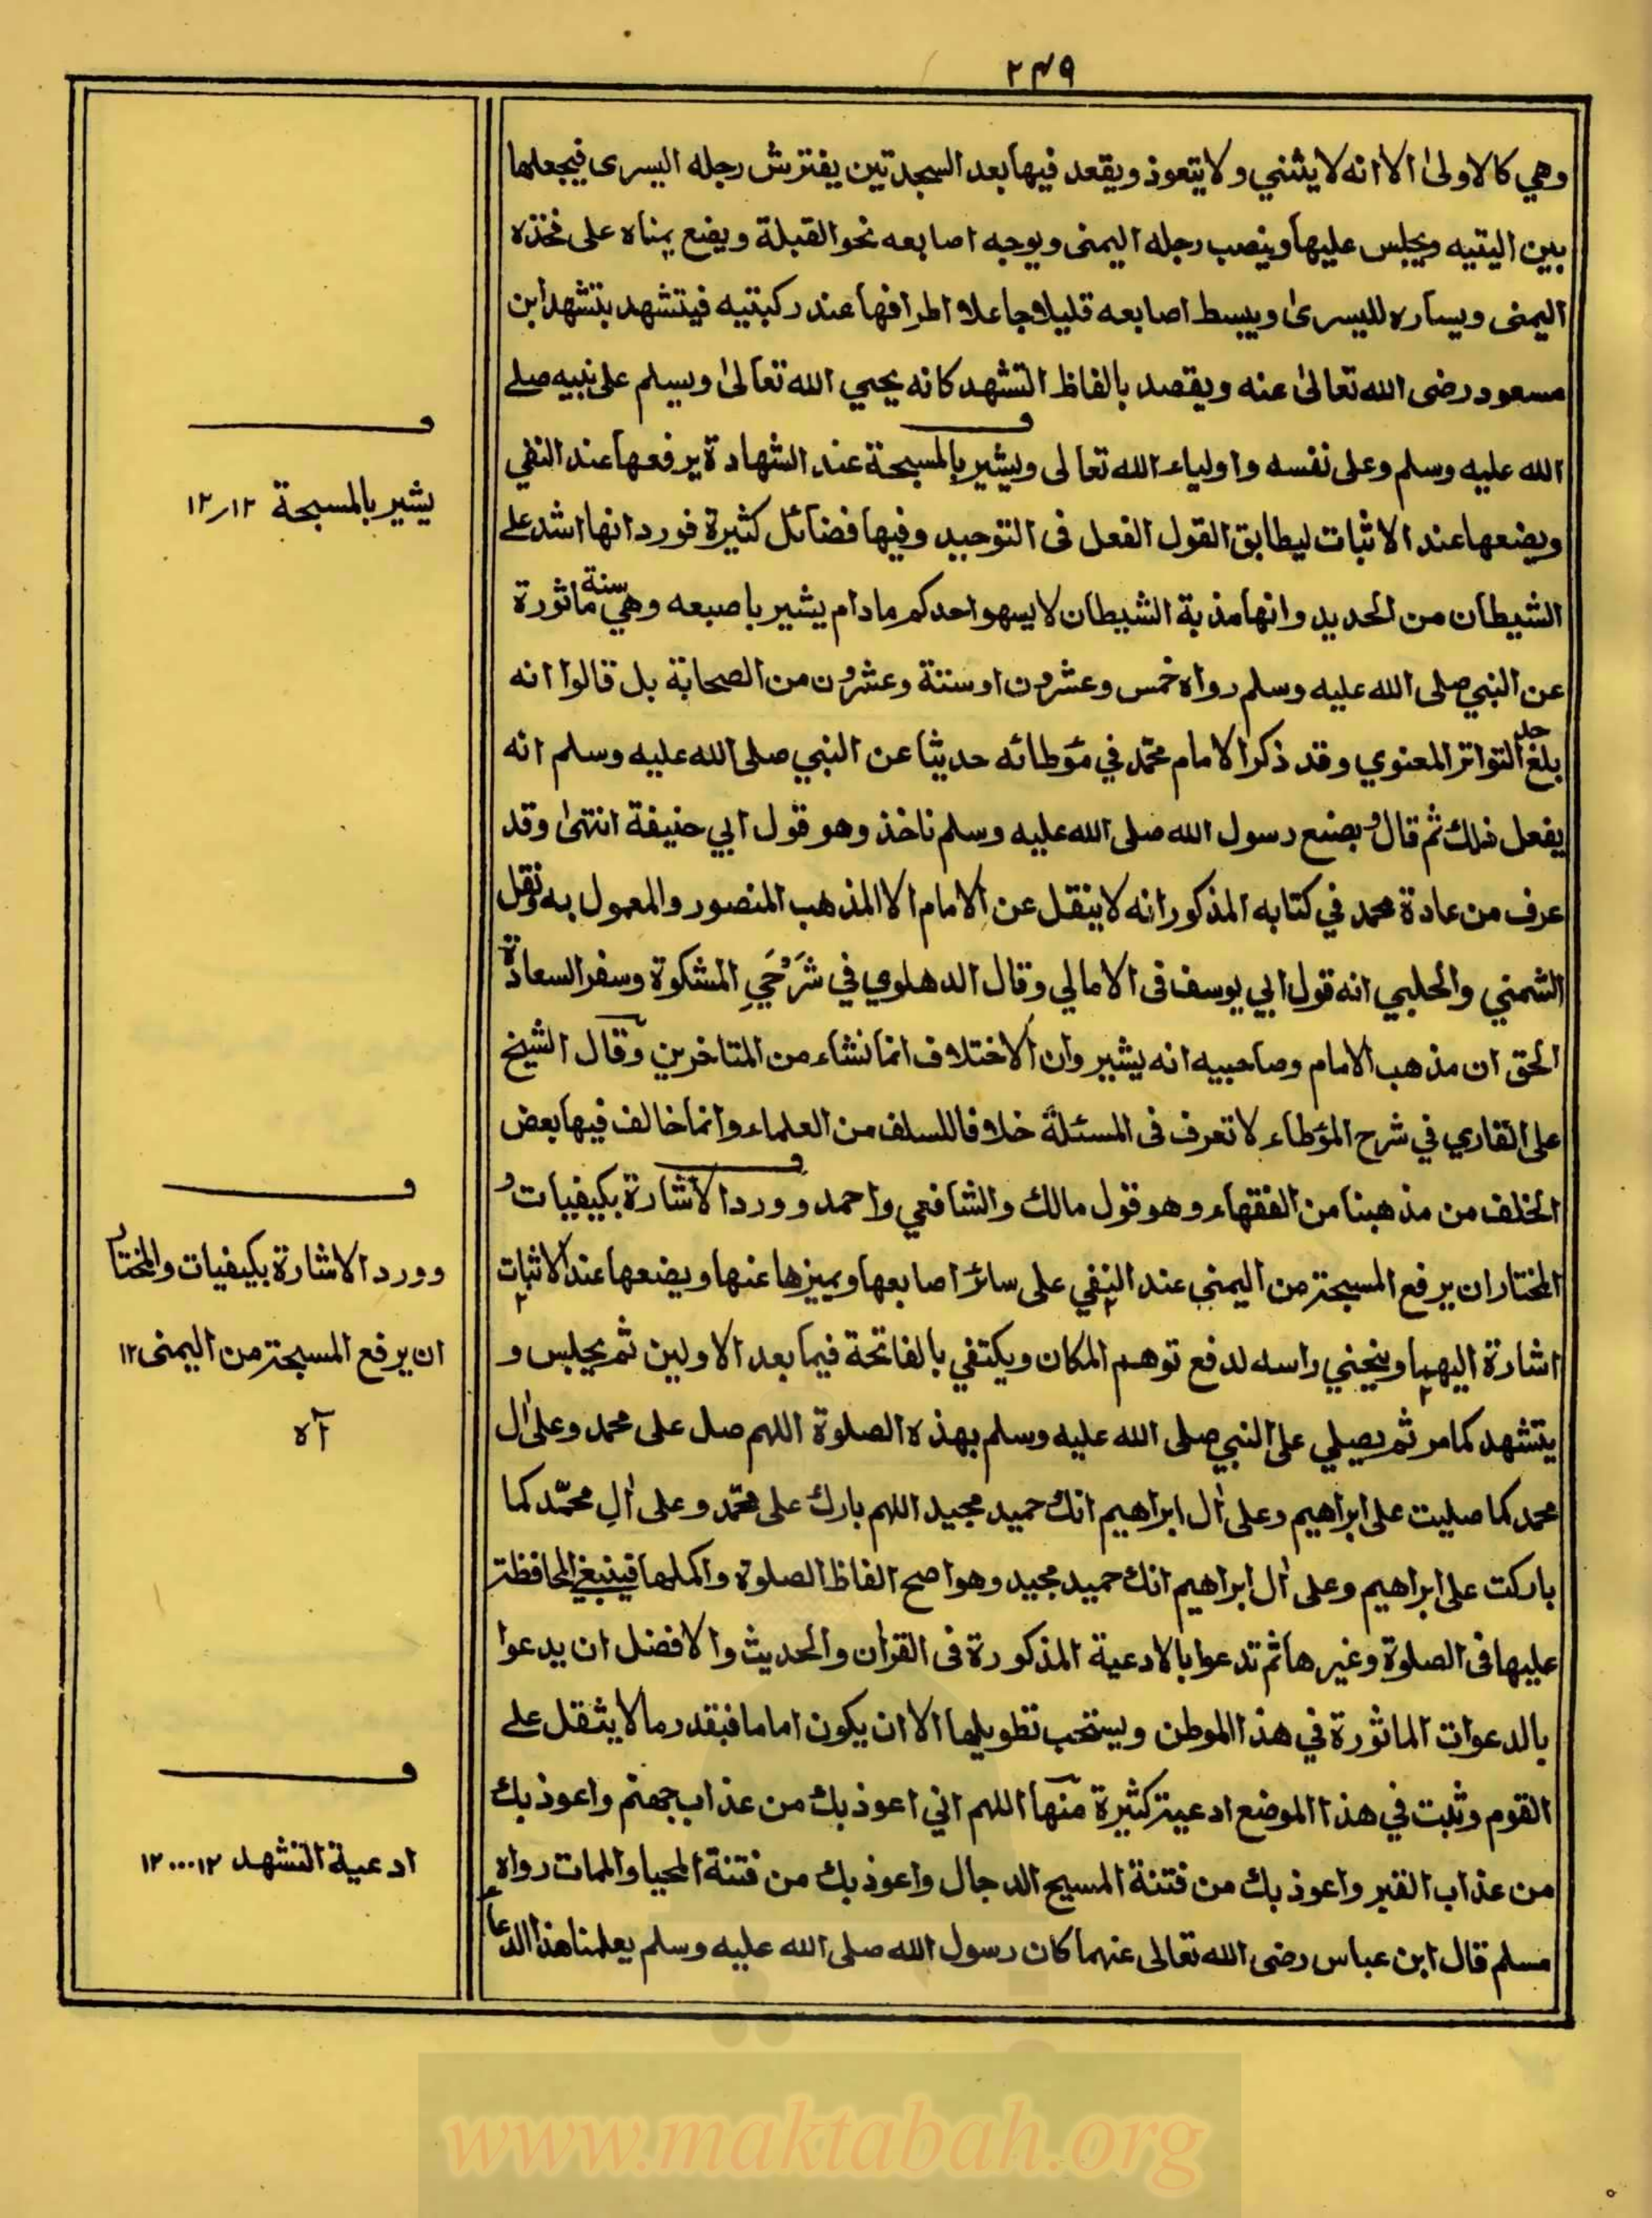 ٢٤٩
وهي كالاولىٰ الا انه لا يثني ولا يتعوذ ويقعد فيها بعد السجدتين يفترش رجله اليسرى فيجعلها
بين اليتيه ويجلس عليها وينصب رجله اليمنى ويوجه اصابعه نحو القبلة ويضع يمناه على فخذه
اليمنى ويساره لليسرىٰ ويبسط اصابعه قليلا جاعلا اطرافها عند ركبتيه فيتشهد بتشهد ابن
مسعود رضى الله تعالىٰ عنه ويقصد بالفاظ التشهد كانه يحيي الله تعالىٰ ويسلم على نبيه صلے
الله عليه وسلم وعلى نفسه واولياء الله تعالى ويشير بالمسبحة عند الشهادة يرفعها عند النفي
ويضعها عند الاثبات ليطابق القول الفعل فى التوحيد وفيها فضائل كثيرة فورد انها اشد علے
الشيطان من الحديد وانها مذبة الشيطان لا يسهو احدكم مادام يشير باصبعه وهي سنة ماثورة
عن النبي صلى الله عليه وسلم رواه خمس وعشرون او ستة وعشرون من الصحابة بل قالوا انه
بلغ حد التواتر المعنوي وقد ذكر الامام محمّد في مؤطائه حديثا عن النبي صلى الله عليه وسلم انه
يفعل ذلك ثم قال وبصنع رسول الله صلى الله عليه وسلم ناخذ وهو قول ابي حنيفة انتهىٰ وقد
عرف من عادة محمد في كتابه المذكور انه لا ينقل عن الامام الا المذهب المنصور والمعمول به ونقل
الشمني والحلبي انه قول ابي يوسف فى الامالي وقال الدهلوي في شَرْحَيِ المشكوة وسفر السعادة
الحق ان مذهب الامام وصاحبيه انه يشير وان الاختلاف انما نشاء من المتاخرين وقال الشيخ
على القاري في شرح المؤطاء لا تعرف فى المسئلة خلافا للسلف من العلماء وانما خالف فيها بعض
الخلف من مذهبنا من الفقهاء وهو قول مالك والشافعي واحمد وورد الاشارة بكيفيات و
المختار ان يرفع المسبحة من اليمني عند النفي على سائر اصابعها ويميزها عنها ويضعها عند الاثبات
اشارة اليهما وينحني راسه لدفع توهم المكان ويكتفي بالفاتحة فيما بعد الاولين ثم يجلس و
يتشهد كما مر ثم يصلي على النبي صلى الله عليه وسلم بهذه الصلوة اللهم صل على محمد وعلىٰ اٰل
محمد كما صليت على ابراهيم وعلى اٰل ابراهيم انك حميد مجيد اللهم بارك على محمّد وعلى اٰلِ محمّد كما
باركت على ابراهيم وعلى اٰل ابراهيم انك حميد مجيد وهو اصح الفاظ الصلوة واكملها فينبغي المحافظة
عليها فى الصلوة وغيرها ثم تدعوا بالادعية المذكورة فى القراٰن والحديث والافضل ان يدعوا
بالدعوات الماثورة في هذا الموطن ويستحب تطويلها الا ان يكون اماما فبقدر ما لا يثقل علے
القوم وثبت في هذا الموضع ادعية كثيرة منها اللهم اني اعوذ بك من عذاب جهنم واعوذ بك
من عذاب القبر واعوذ بك من فتنة المسيح الدجال واعوذ بك من فتنة المحيا والممات رواه
مسلم قال ابن عباس رضى الله تعالى عنهما كان رسول الله صلى الله عليه وسلم يعلمنا هذا الدعاء
يشير بالمسبحة ١٢ر١٢
وورد الاشارة بكيفيات والمختار
ان يرفع المسبحة من اليمنى ١٢
اٰه
ادعية التشهد ١٢...١٢
www.maktabah.org